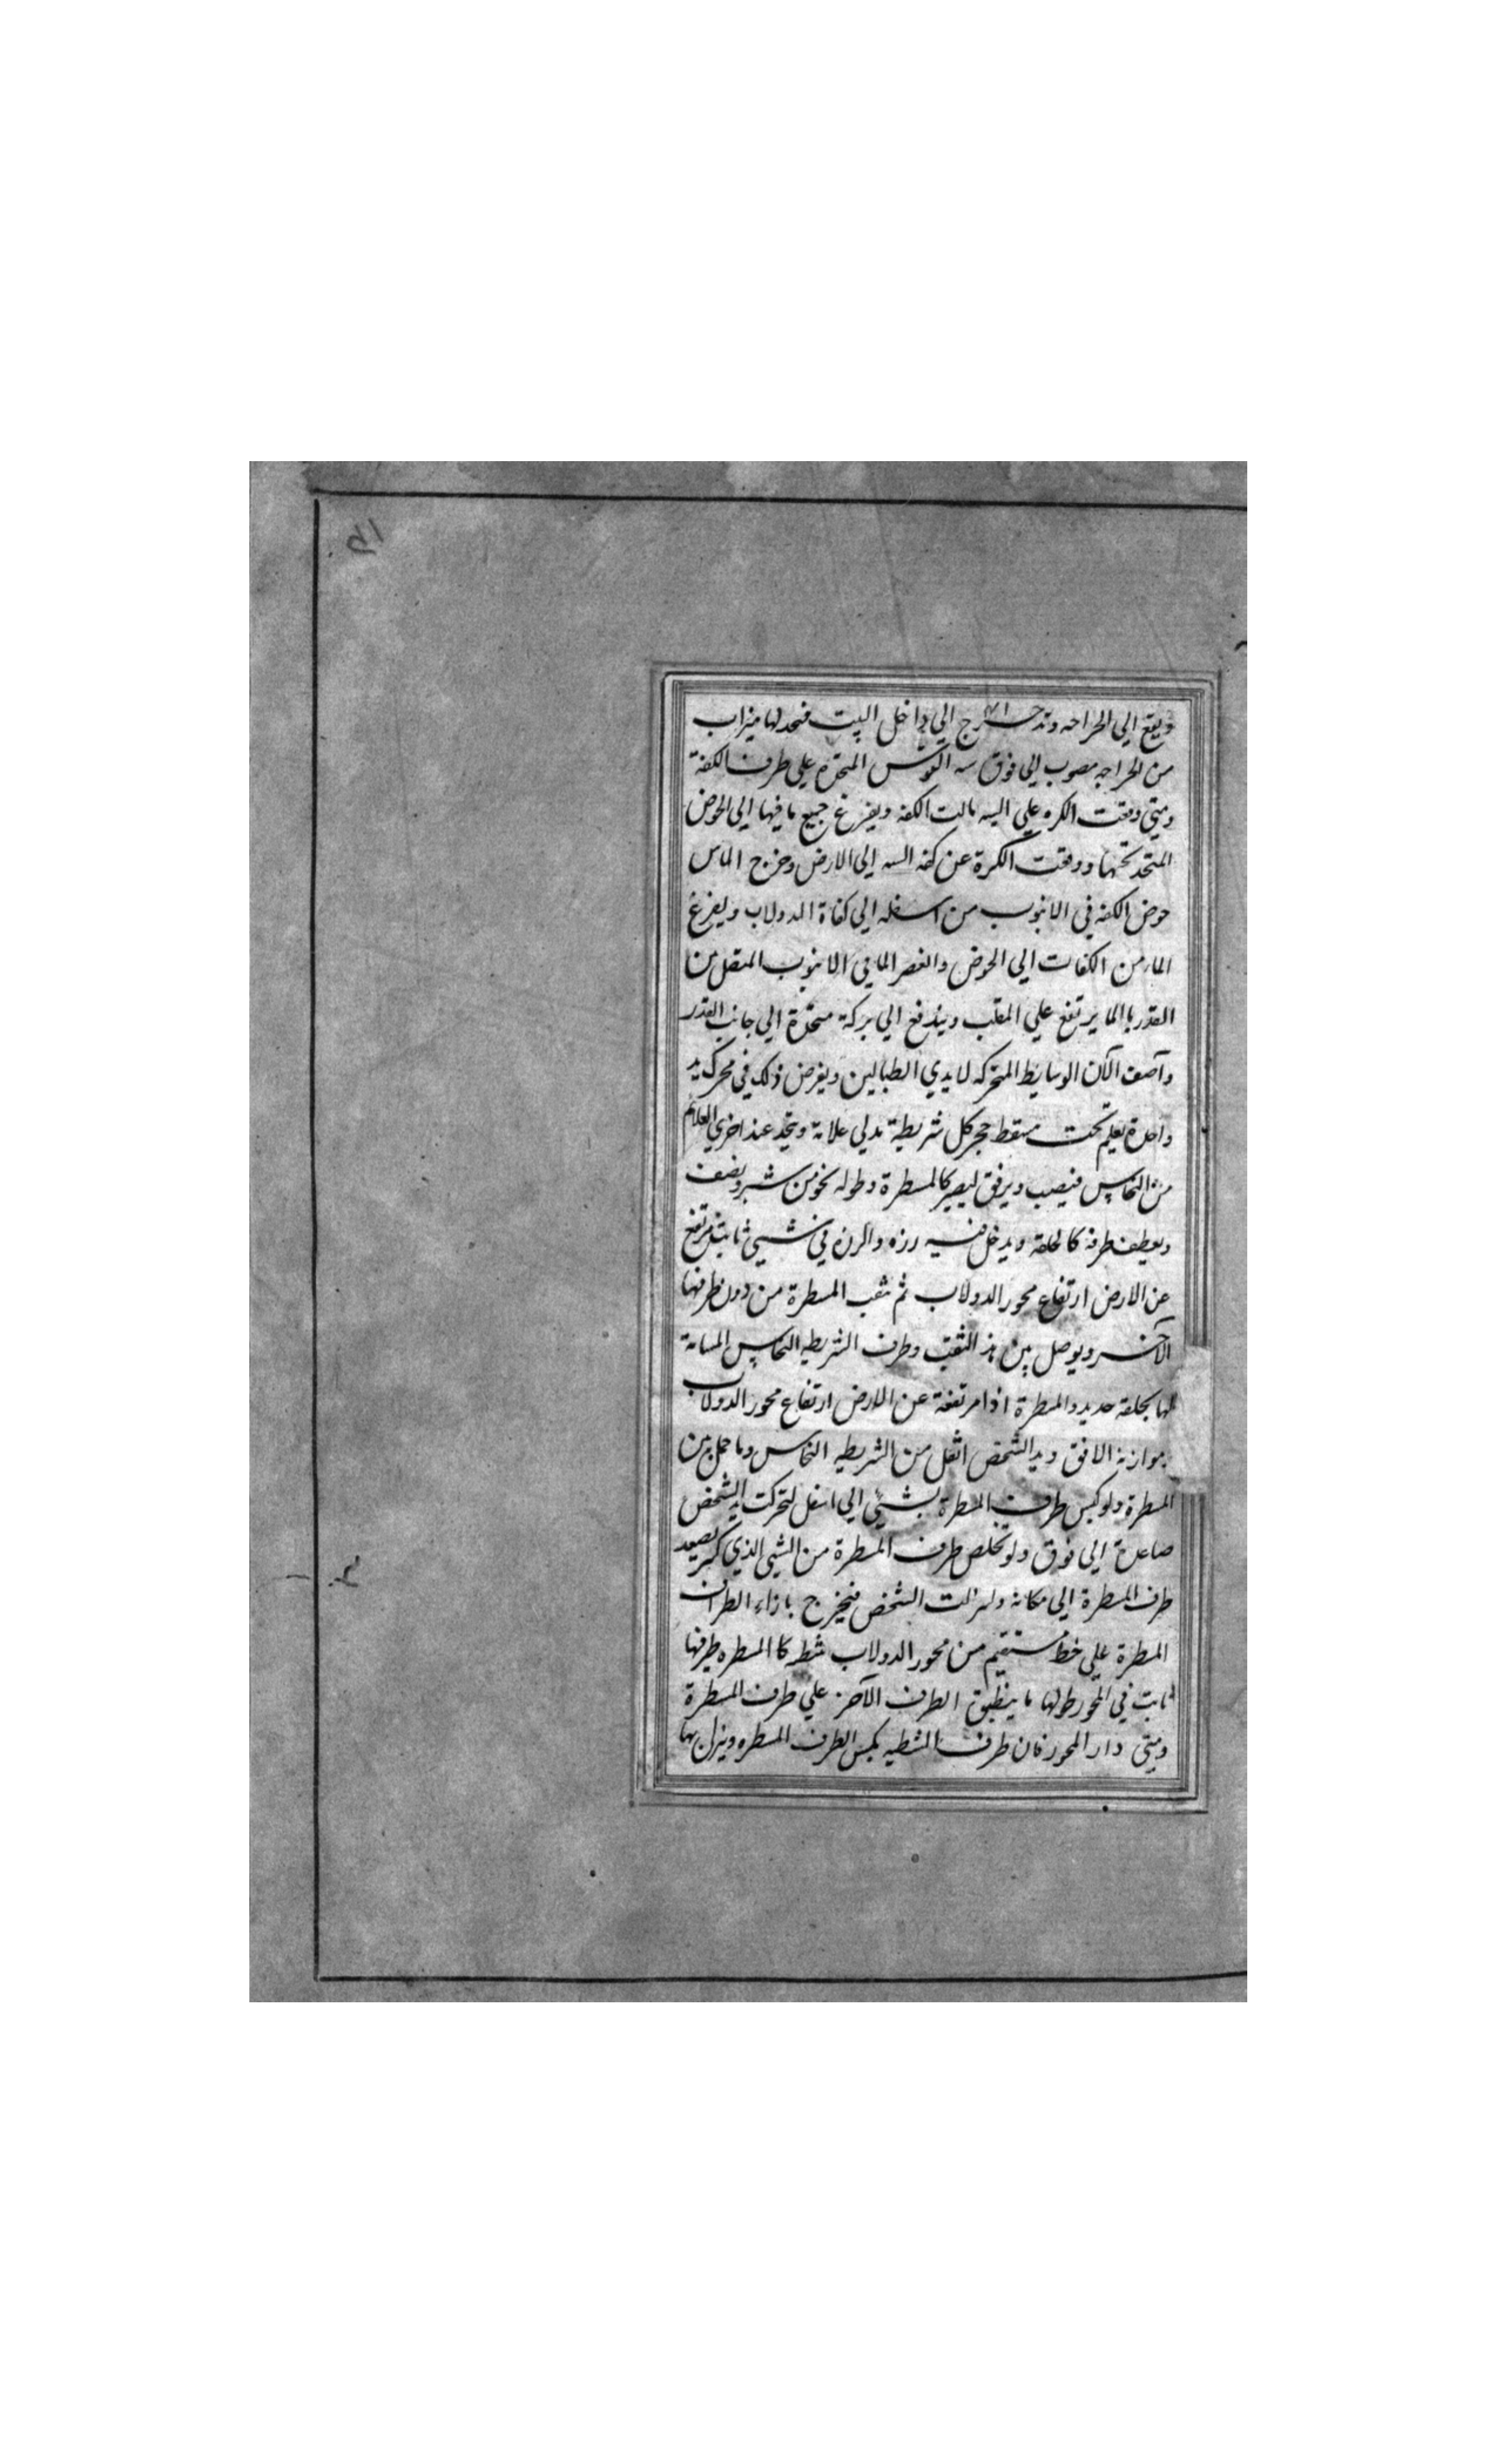 ويقع الي الخراجه وتدحرج الي داخل البيت فنحد لها ميزاب
من الخراجه مصوب الي فوق سه القوس المتخذه علي طرف الكفة
ومتي وقعت الكره علي السه مالت الكفه ويفرغ جميع ما فيها الي الحوض
المتخذ تحتها ووقعت الكرة عن كفه السه الي الارض وخرج الما من
حوض الكفه في الانبوب من اسفله الي كفاة الدولاب ويفرغ
الما من الكفات الي الحوض والغصر الما في الانبوب المتصل من
القدر باالما يرتفع علي المقلب ويندفع الي بركة متخذة الي جانب القدر
وآصف الآن الوسايط المتحركه لايدي الطبالين ويفرض ذلك في محرك يد
واحدة يعلم تحت مسقط حجر كل شريطية يدلي علامة ويتخذ عند اخري العلائم
من النحاس فيصب ويرفق ليصير كالمسطرة وطوله نحو من شبر ونصف
ويعطف طرفه كالحلقة ويدخل فيه رزه والرزه في شيئ ثابت مرتفع
عن الارض ارتفاع محور الدولاب ثم ثقب المسطرة من دون طرفها
الآخر ويوصل بين هذ الثقب وطرف الشريطيه النحاس المسامتة
لها بحلقة حديد والمسطرة اذا مرتفعة عن الارض ارتفاع محور الدولاب
بموازنة الافق ويد الشخص اثقل من الشريطيه النحاس وما حمل من
المسطرة ولو كبس طرف المسطرة بشيئ الي اسفل لتحركت يد الشخص
صاعدة الي فوق ولو تخلص طرف المسطرة من الشيئ الذي كبر يصعد
طرف المسطرة الي مكانه ولنزلت الشخص فيخرج بازاء الطراف
المسطرة علي خط مستقيم من محور الدولاب شطر كا المسطره طرفها
ثابت في المحور طولها ما ينطبق الطرف الآخر علي طرف المسطرة
ومتي دار المحور فان طرف الشطيه يكبس الطرف المسطره وينزل بها